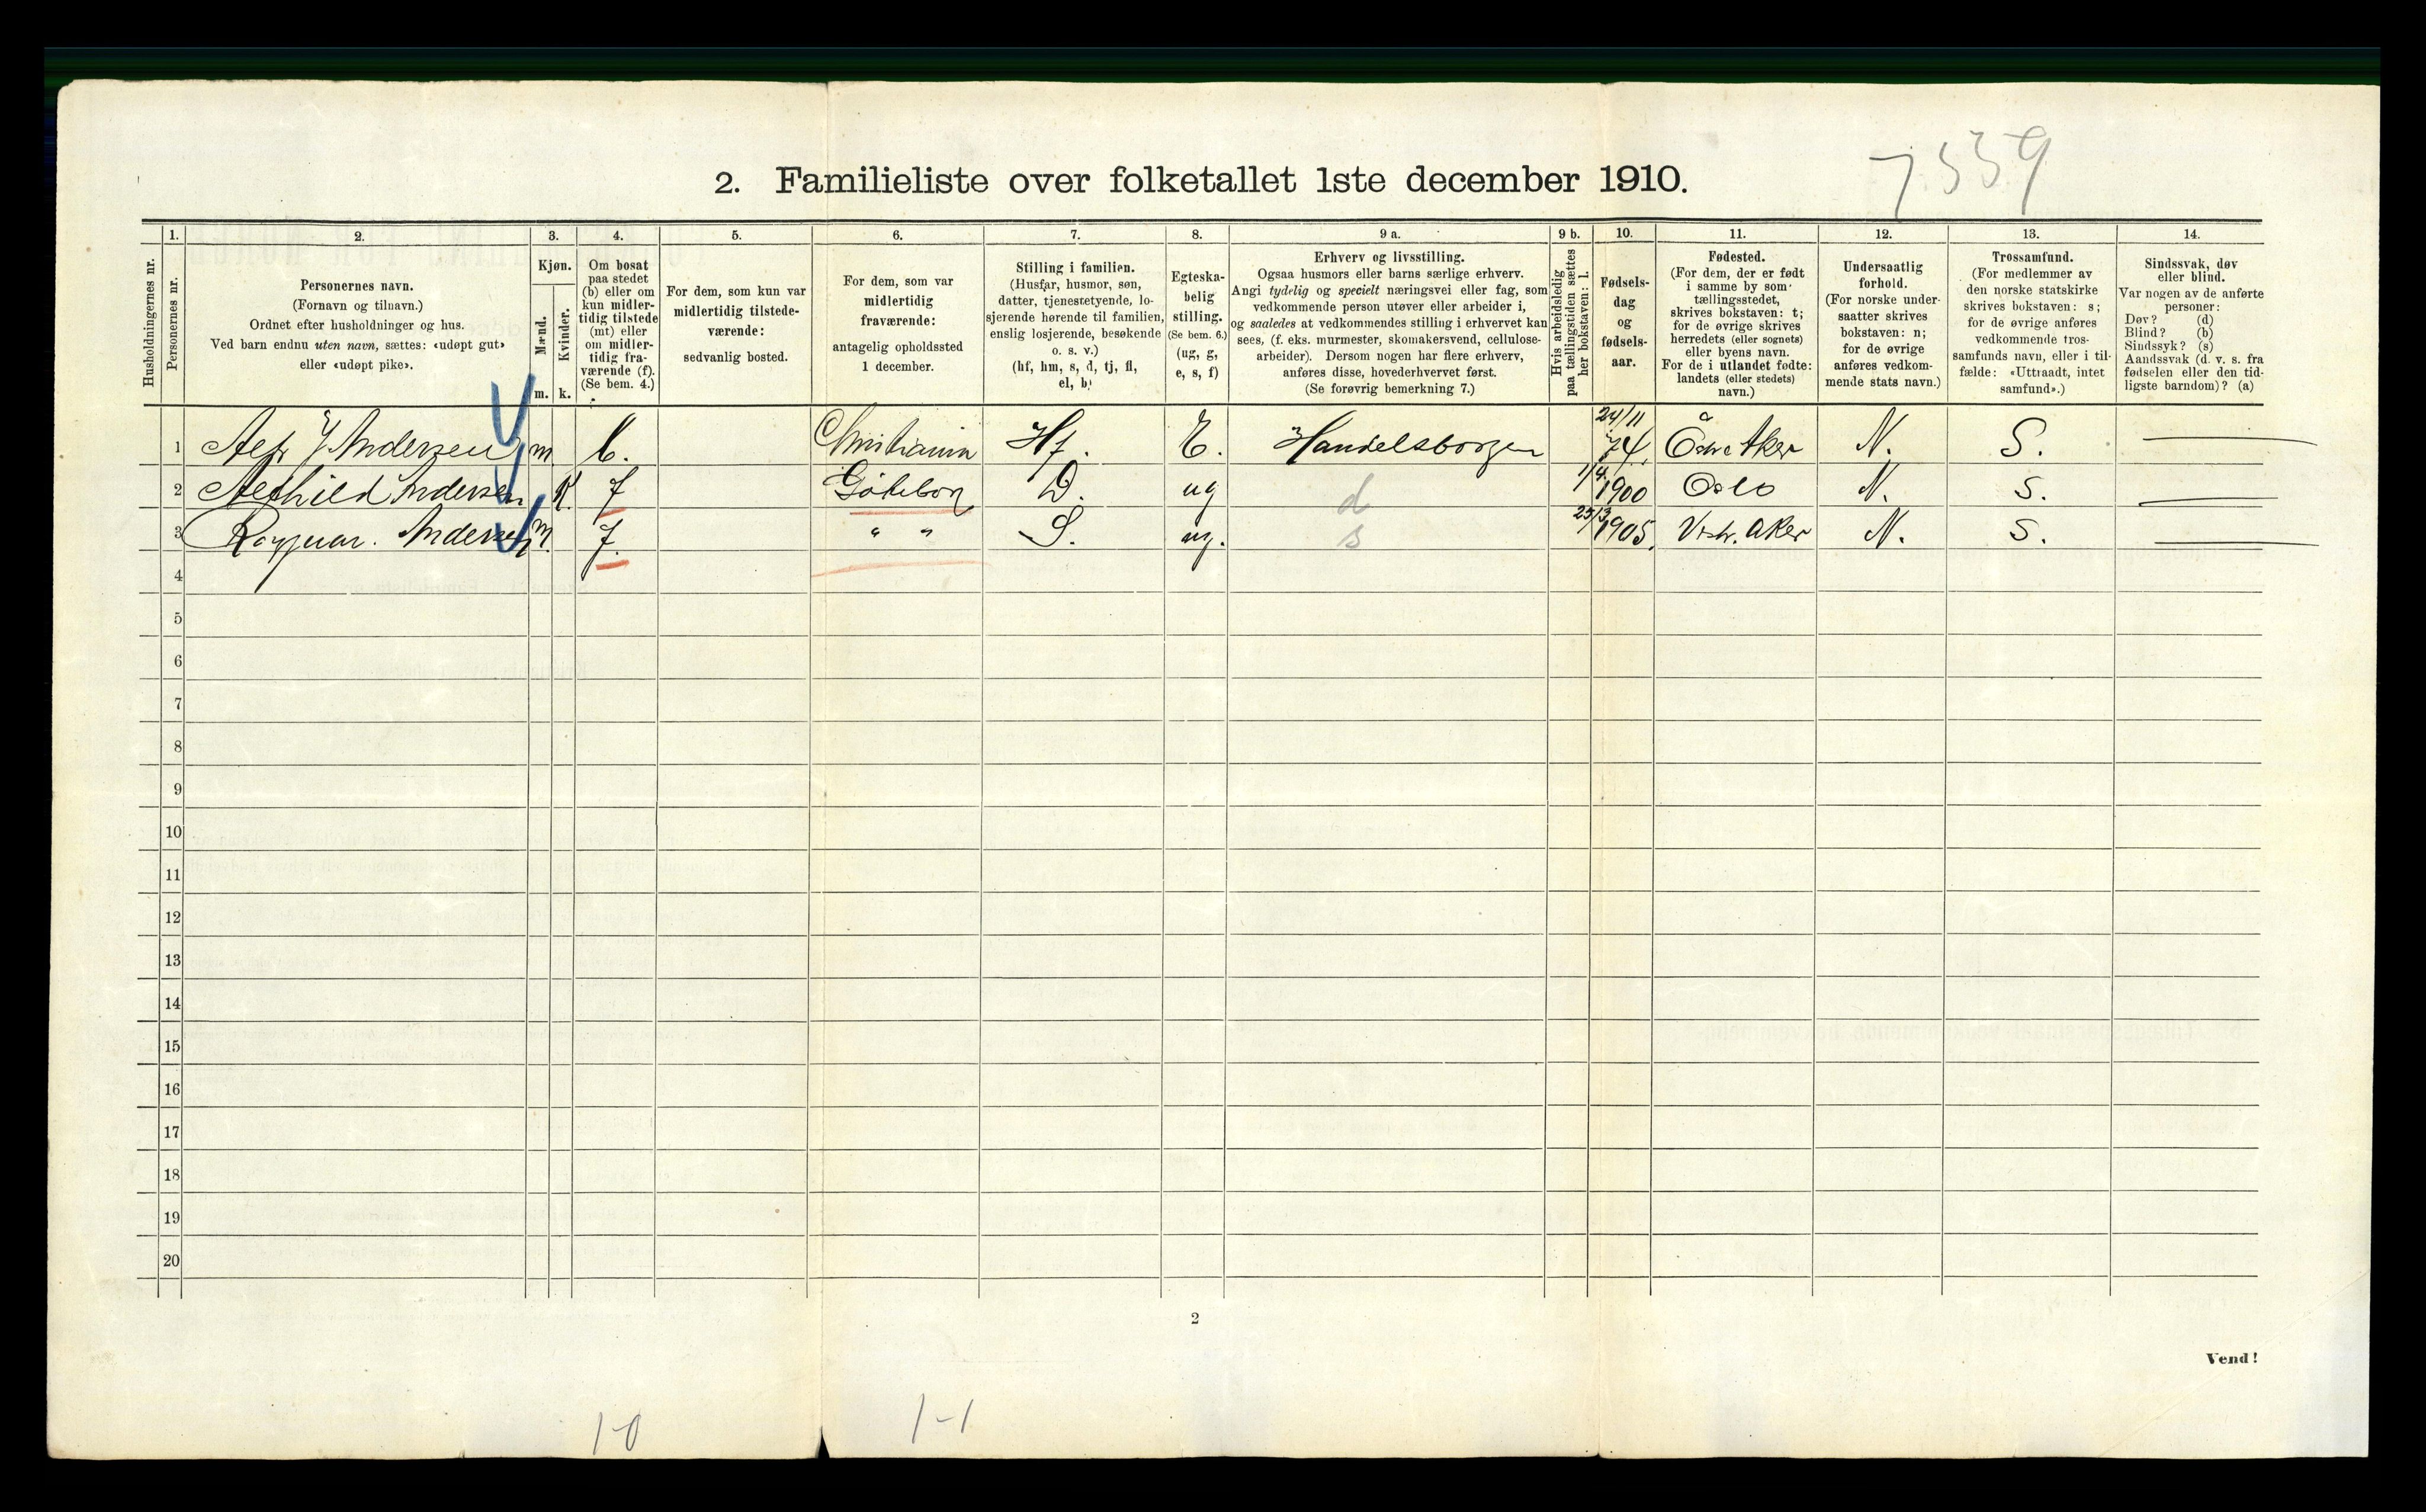 7339
2. Familieliste over folketallet 1ste december 1910.
1. 2. 3. 4. 5. 6. 7. 8. 9 a. 9 b. 10. 11. 12. 13. 14.
Husholdningernes nr.
Personernes nr.
Personernes navn.
(Fornavn og tilnavn.)
Ordnet efter husholdninger og hus.
Ved barn endnu uten navn, sættes: «udøpt gut»
eller «udøpt pike».
Kjøn.
Mænd.
Kvinder.
m. k.
Om bosat
paa stedet
(b) eller om
kun midler-
tidig tilstede
(mt) eller
om midler-
tidig fra-
værende (f).
(Se bem. 4.)
For dem, som kun var
midlertidig tilstede-
værende:
sedvanlig bosted.
For dem, som var
midlertidig
fraværende:
antagelig opholdssted
1 december.
Stilling i familien.
(Husfar, husmor, søn,
datter, tjenestetyende, lo-
sjerende hørende til familien,
enslig losjerende, besøkende
o. s. v.)
(hf, hm, s, d, tj, fl,
el, b)
Egteska-
belig
stilling.
(Se bem. 6.)
(ug, g,
e, s, f)
Erhverv og livsstilling.
Ogsaa husmors eller barns særlige erhverv.
Angi tydelig og specielt næringsvei eller fag, som
vedkommende person utøver eller arbeider i,
og saaledes at vedkommendes stilling i erhvervet kan
sees, (f. eks. murmester, skomakersvend, cellulose-
arbeider). Dersom nogen har flere erhverv,
anføres disse, hovederhvervet først.
(Se forøvrig bemerkning 7.)
Hvis arbeidsledig
paa tællingstiden sættes
her bokstaven: l.
Fødsels-
dag
og
fødsels-
aar.
Fødested.
(For dem, der er født
i samme by som
tællingsstedet,
skrives bokstaven: t;
for de øvrige skrives
herredets (eller sognets)
eller byens navn.
For de i utlandet fødte:
landets (eller stedets)
navn.)
Undersaatlig
forhold.
(For norske under-
saatter skrives
bokstaven: n;
for de øvrige
anføres vedkom-
mende stats navn.)
Trossamfund.
(For medlemmer av
den norske statskirke
skrives bokstaven: s;
for de øvrige anføres
vedkommende tros-
samfunds navn, eller i til-
fælde: «Uttraadt, intet
samfund».)
Sindssvak, døv
eller blind.
Var nogen av de anførte
personer:
Døv? (d)
Blind? (b)
Sindssyk? (s)
Aandssvak (d. v. s. fra
fødselen eller den tid-
ligste barndom)? (a)
1 Andersen m b. Christiania Hf. E. 24/11 74. Aker N. S.
2 Andersen K. f Göteborg D. ug d 1/4 1900 Oslo N. S.
3 Ragnar. Andersen m. f. " " S. ug. s 25/3 1905. Vestr. Aker N. S.
4
5
6
7
8
9
10
11
12
13
14
15
16
17
18
19
20
2
Vend!
1-0 1-1